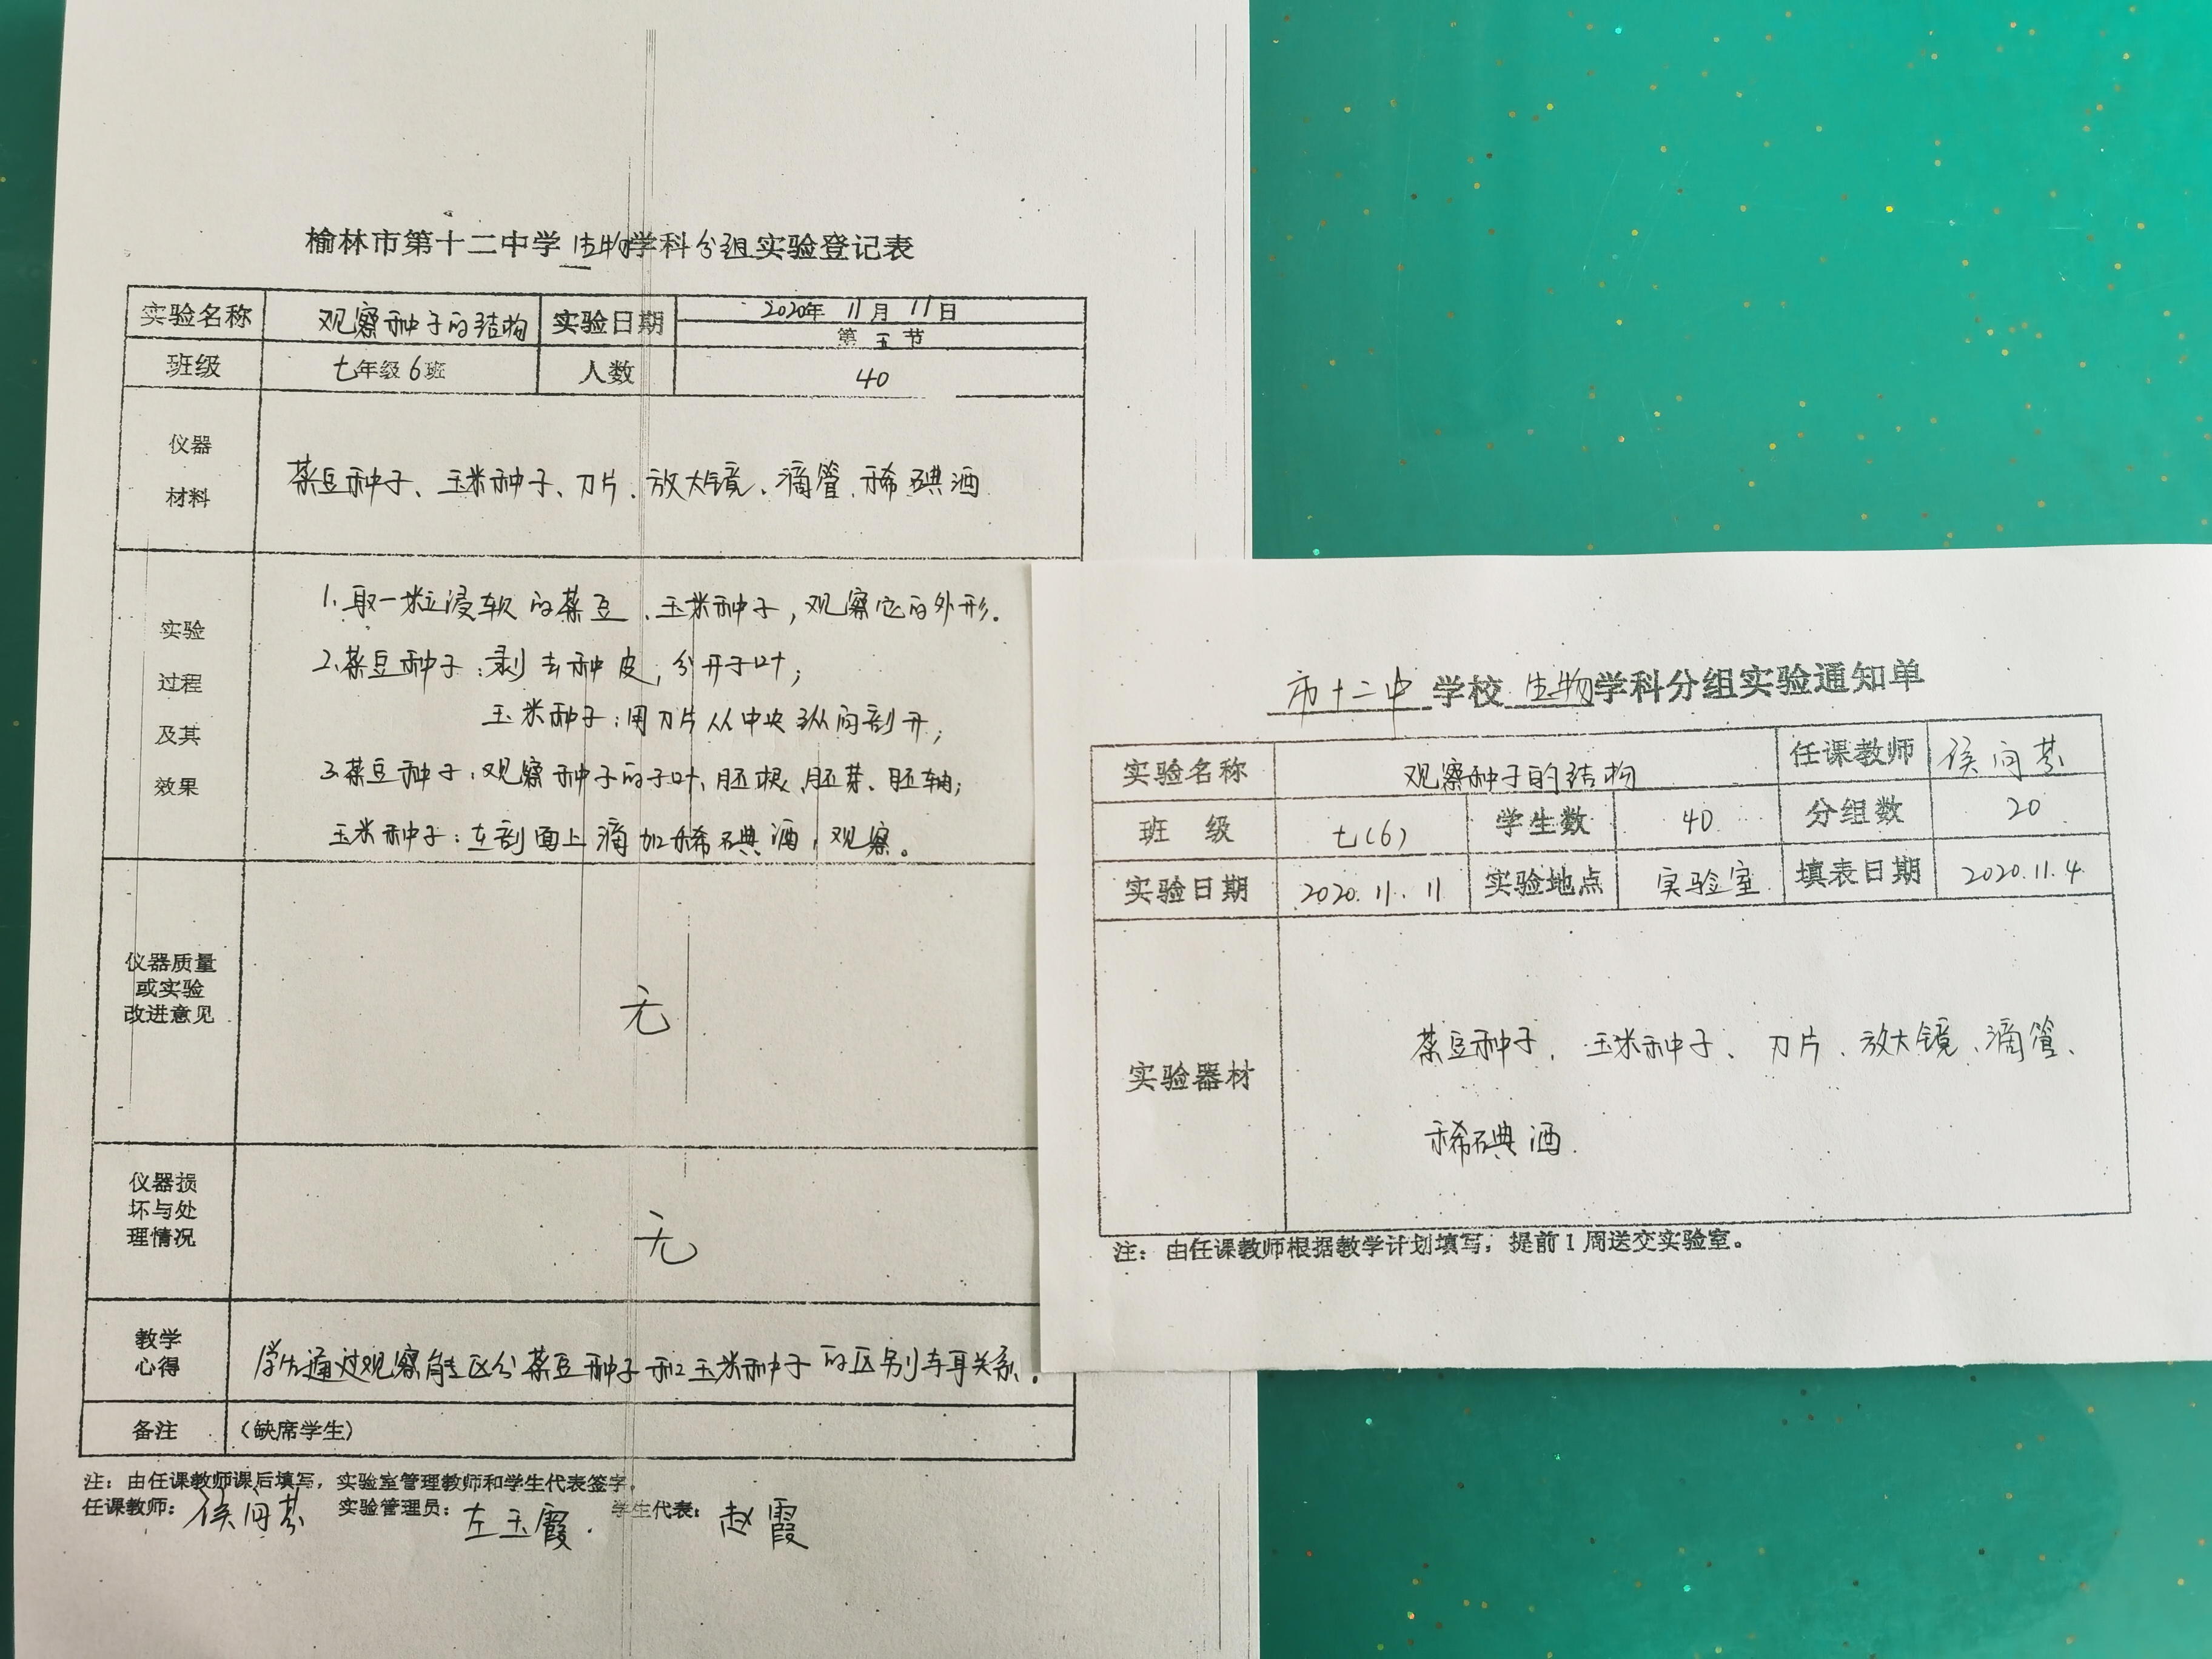 榆林市第十二中学生物学科分组实验登记表
实验名称 观察种子的结构 实验日期 2020年 11月 11日
第 五 节
班级 七年级6班 人数 40
仪器
材料
菜豆种子、玉米种子、刀片、放大镜、滴管、稀碘酒
实验
过程
及其
效果
1.取一粒浸软的菜豆、玉米种子,观察它的外形.
2.菜豆种子:剥去种皮,分开子叶;
玉米种子:用刀片从中央纵向剖开;
3.菜豆种子:观察种子的子叶、胚根、胚芽、胚轴;
玉米种子:在剖面上滴加稀碘酒,观察。
仪器质量
或实验
改进意见
无
仪器损
坏与处
理情况
无
教学
心得
学生通过观察能区分菜豆种子和玉米种子的区别与关系.
备注 (缺席学生)
注:由任课教师课后填写,实验室管理教师和学生代表签字。
任课教师: 实验管理员:左玉霞. 学生代表:赵霞
市十二中学校生物学科分组实验通知单
实验名称 观察种子的结构 任课教师
班 级 七(6) 学生数 40 分组数 20
实验日期 2020.11.11 实验地点 实验室 填表日期 2020.11.4
实验器材
菜豆种子、玉米种子、刀片、放大镜、滴管、
稀碘酒.
注:由任课教师根据教学计划填写,提前1周送交实验室。